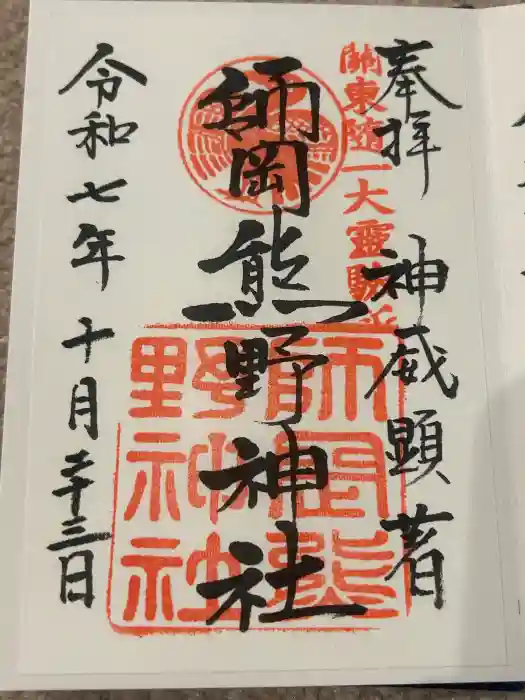 奉拝 神威顕著
關東随一大靈驗所
師岡熊野神社
師岡熊
野神社
令和七年十月二十三日